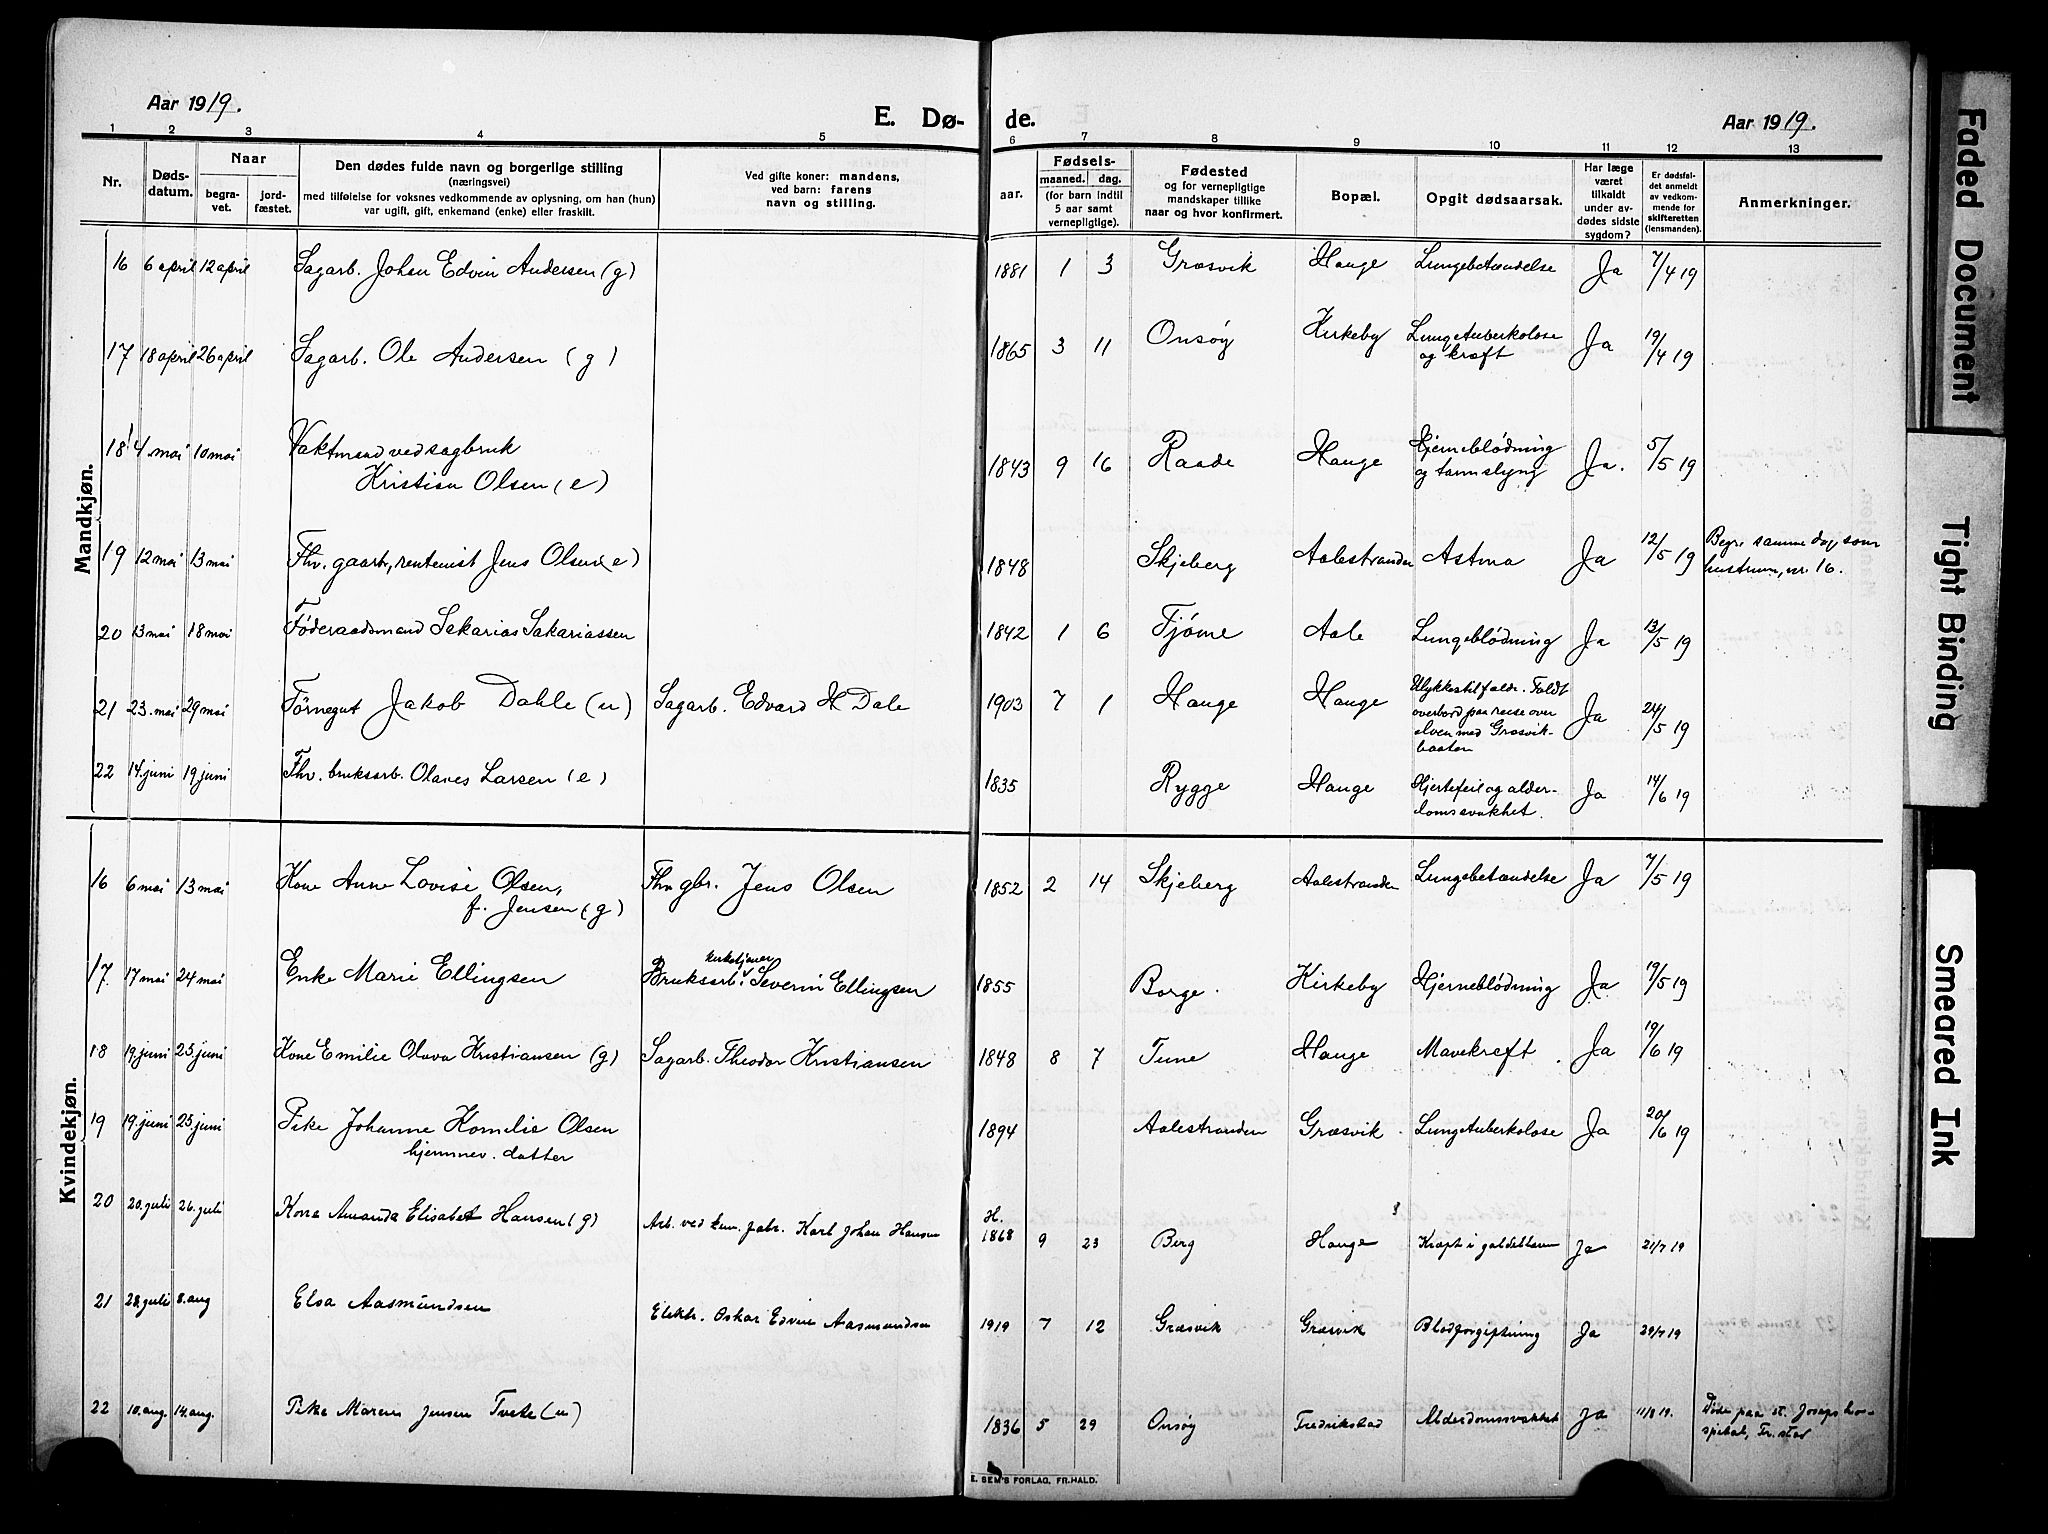 Aar 1919.
E. Dø- de.
Aar 1919.
1 2 3 4 5 6 7 8 9 10 11 12 13
Nr.
Døds-
datum.
Naar
begra-
vet.
jord-
fæstet.
Den dødes fulde navn og borgerlige stilling
(næringsvei)
med tilføielse for voksnes vedkommende av oplysning, om han (hun)
var ugift, gift, enkemand (enke) eller fraskilt.
Ved gifte koner: mandens,
ved barn: farens
navn og stilling.
aar.
Fødsels-
maaned. dag.
(for barn indtil
5 aar samt
vernepligtige).
Fødested
og for vernepligtige
mandskaper tillike
naar og hvor konfirmert.
Bopæl.
Opgit dødsaarsak.
Har læge
været
tilkaldt
under av-
dødes sidste
sygdom?
Er dødsfal-
det anmeldt
av vedkom-
mende for
skifteretten
(lensmanden).
Anmerkninger.
Mandkjøn.
16 6 april 12 april Sagarb. Johan Edvin Andersen (g) 1881 1 3 Græsvik Hauge Lungebetændelse Ja 7/4 19
17 18 april 26 april Sagarb. Ole Andersen (g) 1865 3 11 Onsøy Kirkeby Lungetuberkolose Ja 19/4 19
og kræft
18 4. mai 10 mai Vaktmand ved sagbruk
Kristian Olsen (e) 1843 9 16 Raade Hauge Hjerneblödning Ja. 5/5 19
og tarmslyng
19 12 mai 13 mai Fhv. gaarbr, rentenist Jens Olsen (e) 1848 Skjeberg Aalestranden Astma Ja 12/5 19 Begr. samme dag som
hustruen, nr 16.
20 13 mai 18 mai Föderaadsmand Sakarias Sakariassen 1842 1 6 Tjöme Aale Lungeblödning Ja 13/5 19
21 23. mai 29 mai Förnegut Jakob Dahle (u) Sagarb. Edvard H Dale 1903 7 1 Hauge Hauge Ulykkestilfælde. Faldt Ja 24/5 19
overbord paa reise over
elven med Græsvik-
baaten
22 14. juni 19 juni Fhv. bruksarb. Olaves Larsen (e) 1835 Rygge Hauge Hjertefeil og alder- Ja 14/6 19
domssvakhet.
Kvindekjøn.
16 6 mai 13 mai Kone Anne Lovise Olsen, Fhv gbr. Jens Olsen 1852 2 14 Skjeberg Aalestranden Lungebetændelse Ja 7/5 19
f. Jensen (g)
kirketjener
17. 17 mai 24 mai Enke Marie Ellingsen Bruksarb. Severin Ellingsen 1855 Borge. Kirkeby Hjerneblödning Ja 19/5 19
18 19. juni 25. juni Kone Emilie Olava Kristiansen (g) Sagarb. Theodor Kristiansen 1848 8 7 Tune Hauge Mavekreft. Ja 19/6 19
19 19. juni 25. juni Pike Johanne Kornelie Olsen 1894 Aalestranden Græsvik. Lungetuberkolose Ja 20/6 19
hjemmev. datter
20 20. juli 26. juli Kone Amanda Elisabet Hansen (g) Arb. ved kem. fabr. Karl Johan Hansen H. 1868 9 23 Berg Hauge Kræft i galdeblæren Ja 21/7 19
21 28. juli 8. aug Elsa Aasmundsen Elektr. Oskar Edvin Aasmundsen 1919 7 12 Græsvik Græsvik Blodforgiftning Ja 29/7 19
22 10. aug. 14. aug. Pike Maren Jensen Tvete (u) 1836 5 29 Onsøy Fredrikstad Alderdomssvakhet Ja 11/8 19. Døde paa st. Josephs ho-
spital, Fr. stad
E. SEM'S FORLAG, FR.HALD.
Faded Document
Tight Binding
Smeared Ink